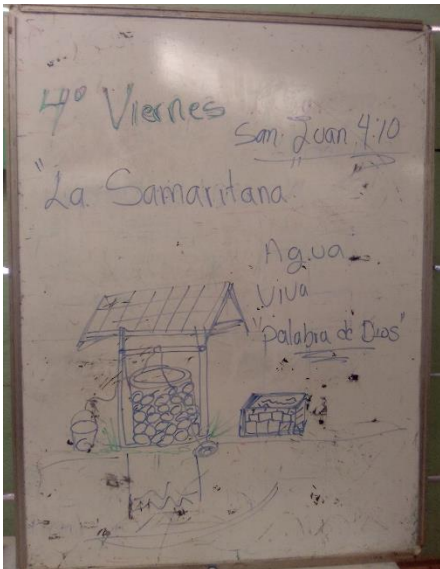 4º Viernes
San Juan 4:10
"La Samaritana"
Agua
Viva
"Palabra de Dios"